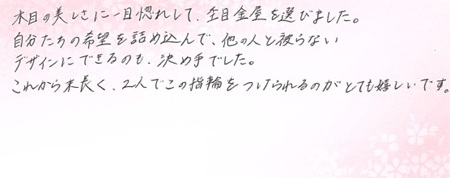 木目の美しさに一目惚れして、杢目金屋を選びました。
自分たちの希望を詰め込んで、他の人と被らない
デザインにできるのも、決め手でした。
これから末長く、2人でこの指輪をつけられるのがとても嬉しいです。